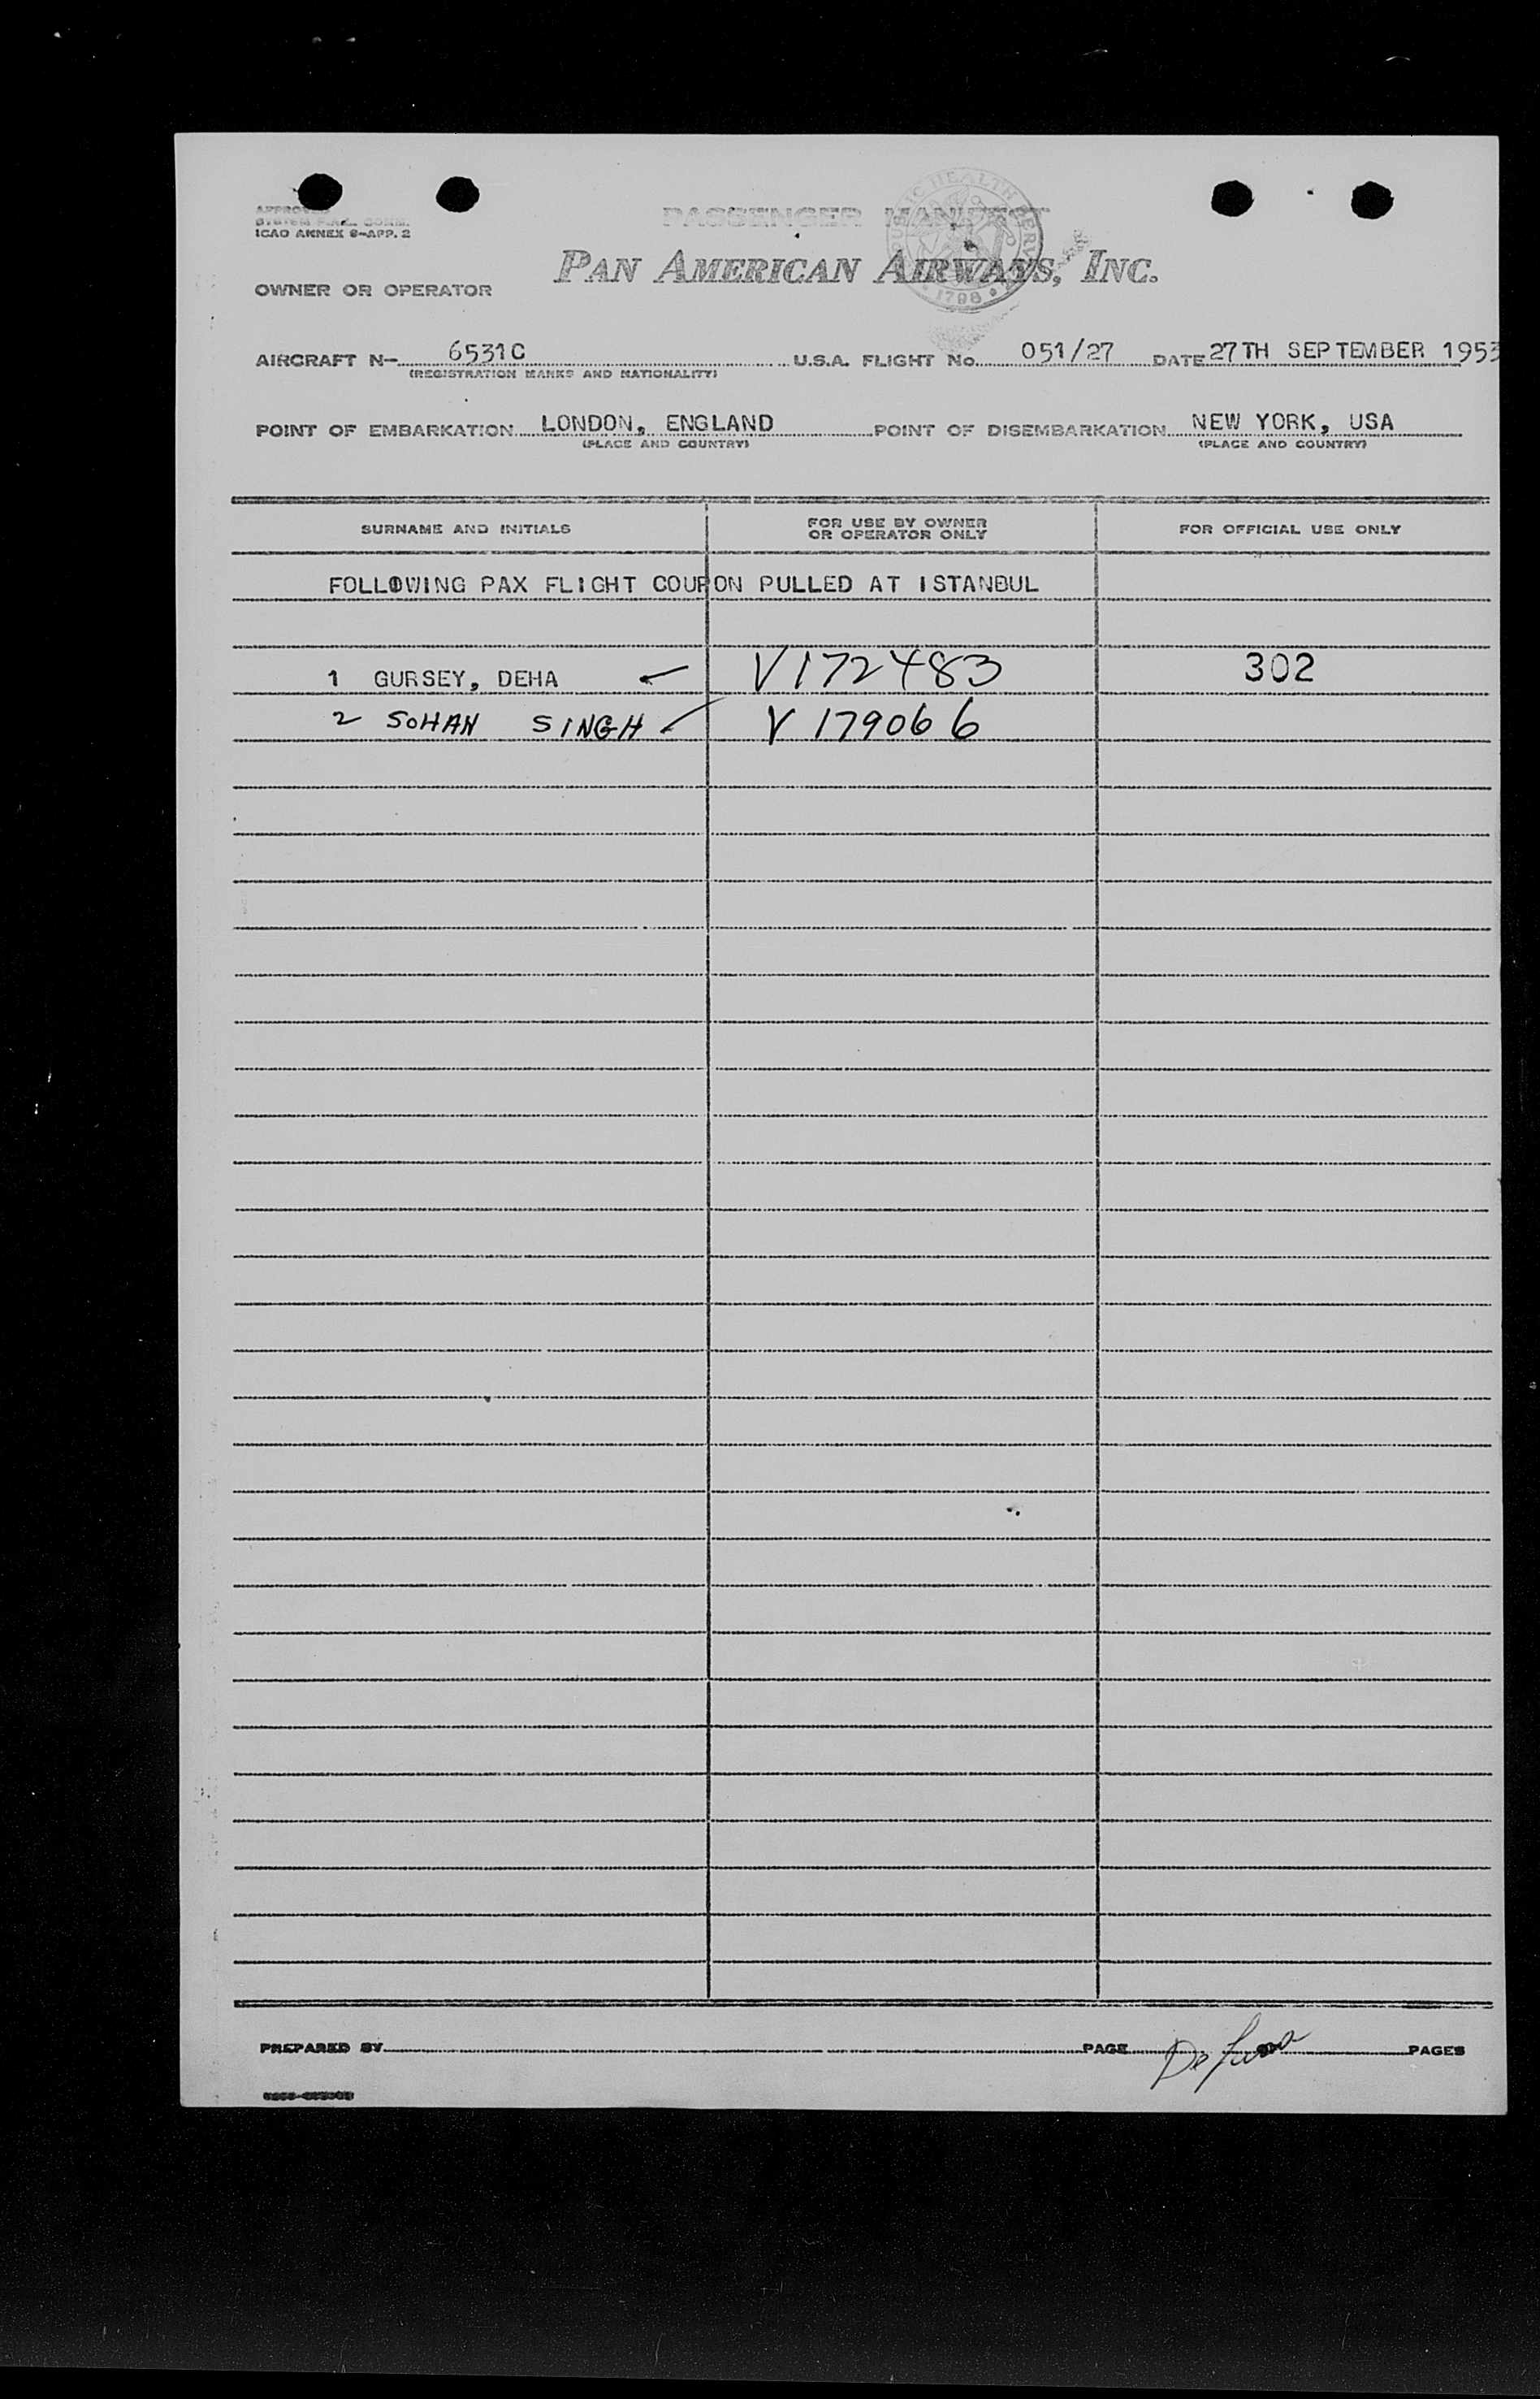 APPROVED
SYSTEM F.A.L. COMM.
ICAO ANNEX 9-APP. 2
PASSENGER MANIFEST
PUBLIC HEALTH SERVICE
1798
PAN AMERICAN AIRWAYS, INC.
OWNER OR OPERATOR
AIRCRAFT N- 6531C U.S.A. FLIGHT No. 051/27 DATE 27TH SEPTEMBER 1953
(REGISTRATION MARKS AND NATIONALITY)
POINT OF EMBARKATION LONDON, ENGLAND POINT OF DISEMBARKATION NEW YORK, USA
(PLACE AND COUNTRY) (PLACE AND COUNTRY)
SURNAME AND INITIALS FOR USE BY OWNER OR OPERATOR ONLY FOR OFFICIAL USE ONLY
FOLLOWING PAX FLIGHT COUPON PULLED AT ISTANBUL
1 GURSEY, DEHA V172483 302
2 SOHAN SINGH V179066
PREPARED BY PAGE PAGES